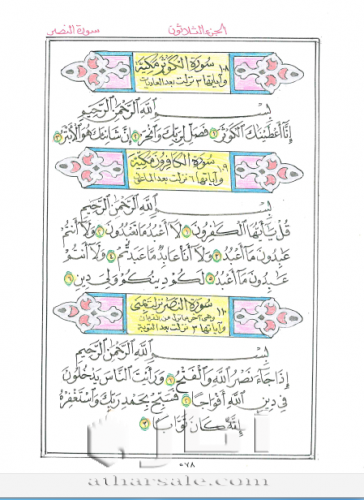 الجزء الثلاثون سورة النصر
١٠٨ سورة الكوثر مكية
وآياتها ٣ نزلت بعد العاديات
بسم الله الرحمن الرحيم
إنا أعطينك الكوثر ١ فصل لربك وانحر ٢ إن شانئك هو الأبتر ٣
١٠٩ سورة الكافرون مكية
وآياتها ٦ نزلت بعد الماعون
بسم الله الرحمن الرحيم
قل يأيها الكفرون ١ لا أعبد ما تعبدون ٢ ولا أنتم
عبدون ما أعبد ٣ ولا أنا عابد ما عبدتم ٤ ولا أنتم
عبدون ما أعبد ٥ لكم دينكم ولي دين ٦
١١٠ سورة النصر نزلت بمنى
وهي آخر ما نزل من السور
وآياتها ٣ نزلت بعد التوبة
بسم الله الرحمن الرحيم
إذا جاء نصر الله والفتح ١ ورأيت الناس يدخلون
في دين الله أفواجا ٢ فسبح بحمد ربك واستغفره
إنه كان توابا ٣
٥٧٨
atharsale.com